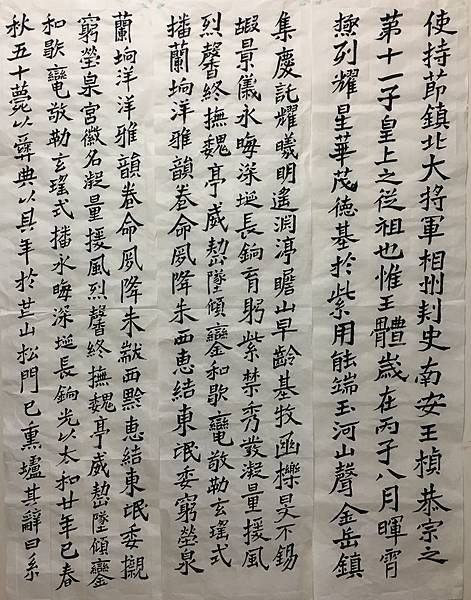 使持節鎮北大将軍相州刾史南安王楨恭宗之
第十一子皇上之從祖也惟王體歲在丙子八月暉霄
列耀星華茂德基於紫用能端玉河山聲金岳鎮
集慶託耀曦明遙淵渟瞻山早齡基牧函櫟旻不錫
嘏景儀永晦深埏長銷育躬紫禁秀發凝量援風
烈馨終撫魏亭威懃墜傾鑾和歌敬勒玄瑤式
播蘭坰洋雅韻眷命夙降朱西惠結東氓委窮塋泉
蘭坰洋洋雅韻眷命夙降朱黻西黔惠結東氓委櫬
窮塋泉宮徽名凝量援風烈馨終撫魏亭威懃墜傾鑾
和歌敬勒玄瑤式播永晦深埏長銷光以太和廿年已春
秋五十薨以彝典以其年於芒山松門已熏壚其辭曰系